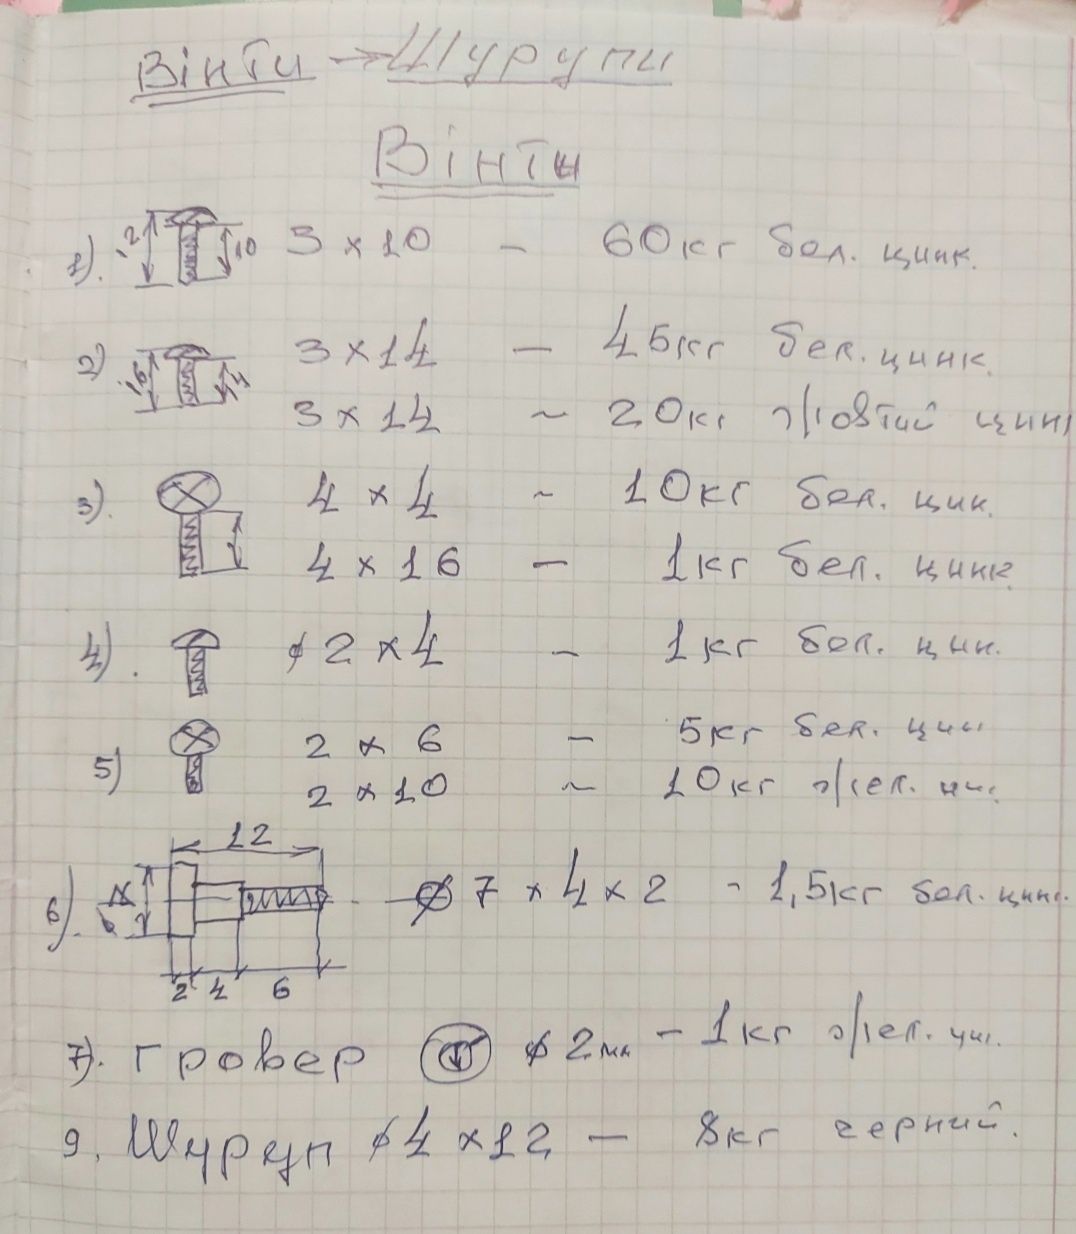 Вінти → Шурупи
Вінти
1). 12 10 3 × 10 – 60кг бел. цинк.
2) 16 14 3 × 14 – 45кг бел. цинк.
3 × 14 ~ 20кг жовтий цинк
3). 4 × 4 ~ 10кг бел. цин.
4 × 16 – 1кг бел. цинк.
4). ϕ 2 × 4 – 1кг бел. цин.
5) 2 × 6 – 5кг бел. цин
2 × 10 ~ 10кг жел.
12
6). ϕ 7 × 4 × 2 - 1,5кг бел. цинк.
2 4 6
7). гровер ϕ 2мм – 1кг жел. цин.
9. Шуруп ϕ 4 × 12 – 8кг черний.